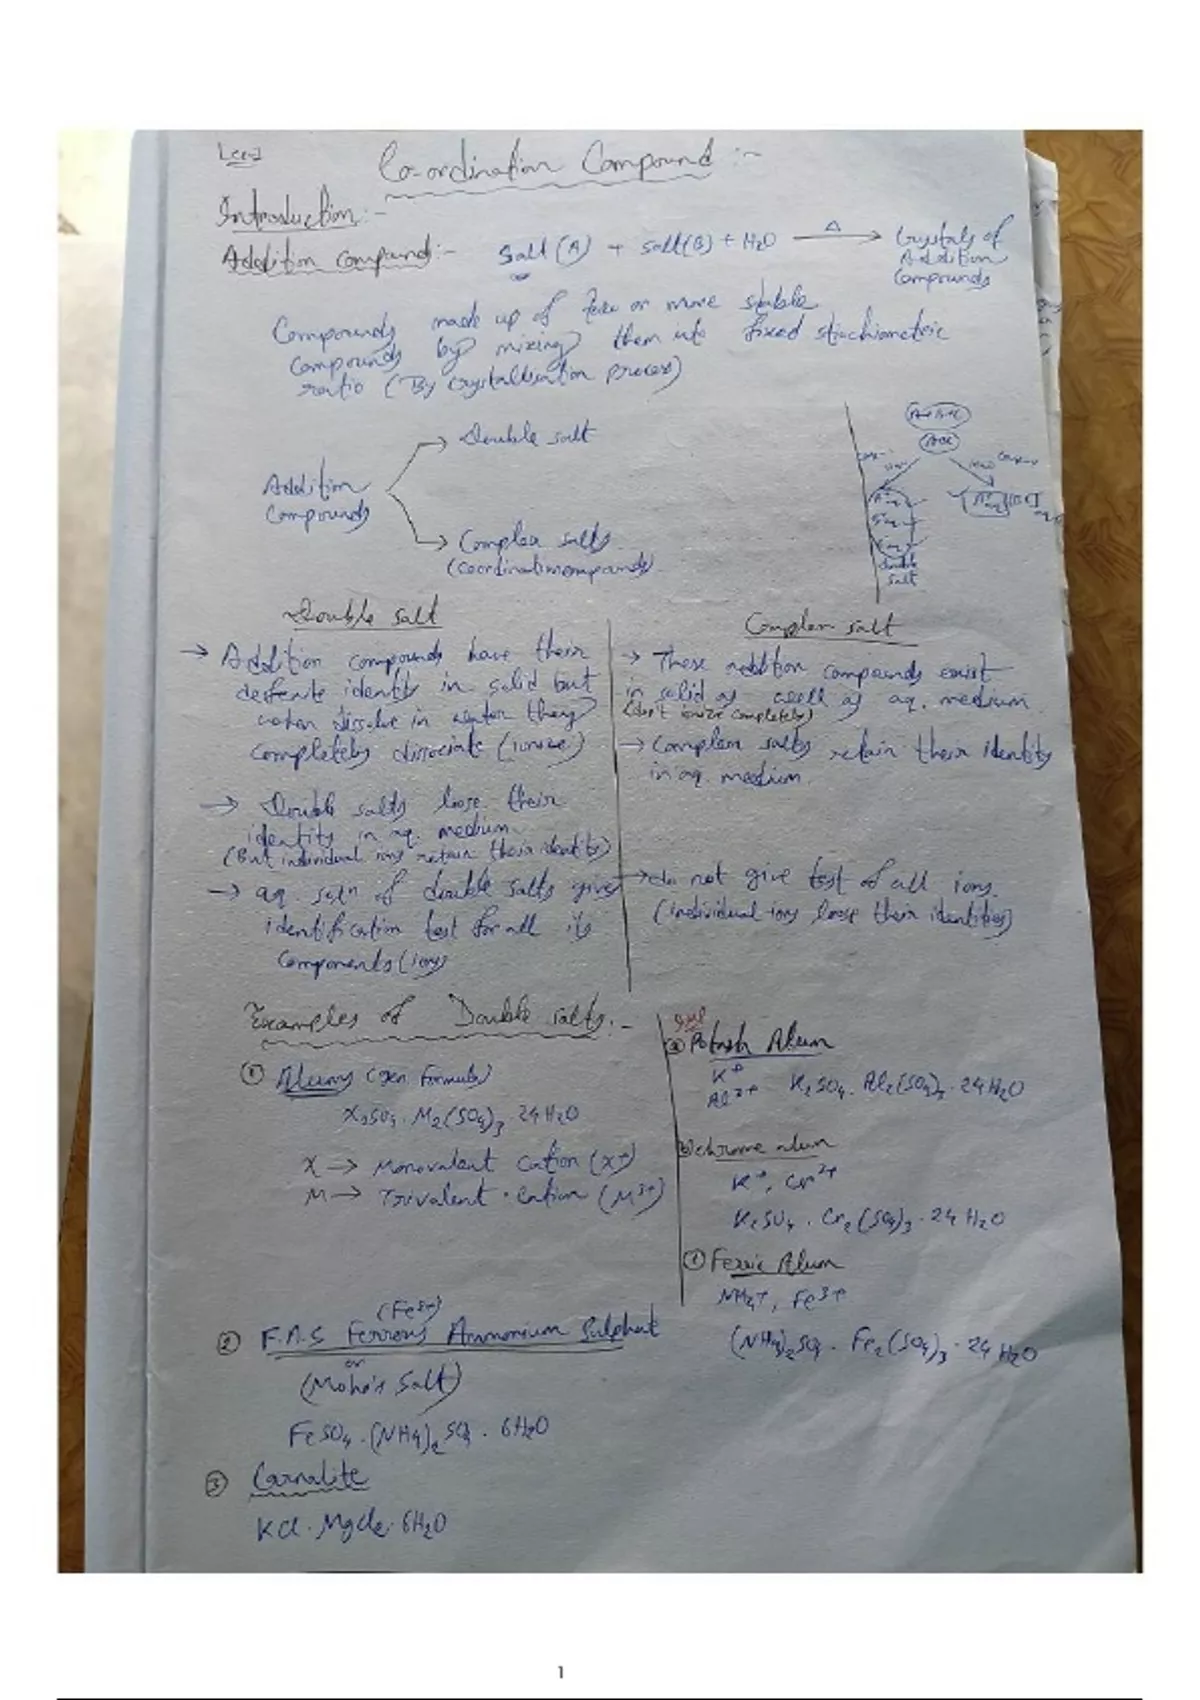 Lec-1
Co-ordination Compound :-
Introduction :-
Addition compound :- Salt (A) + salt (B) + H2O —Δ→ Crystals of Addition Compounds
Compounds made up of two or more stable
compounds by mixing them into fixed stiochiometric
ratio (By crystallisation process)
Addition Compounds
→ Double salt
→ Complex salts
(coordination compounds)
double
salt
Double salt
→ Addition compounds have their
definite identity in solid but
when dissolve in water they
completely dissociate (ionize)
→ Double salts loose their
identity in aq. medium
(But individual ions retain their identity)
→ aq. solⁿ of double salts gives
identification test for all its
Components (ions)
Complex salt
→ These addition compounds exist
in solid as well as aq. medium.
(don't ionize completely)
→ Complex salts retain their identity
in aq. medium.
→ do not give test of all ions.
(individual ions loose their identities)
Examples of Double salts :-
① Alums (gen. Formula)
X2SO4 . M2(SO4)3 . 24H2O
X → Monovalent cation (X+)
M → Trivalent cation (M3+)
(a) Potash Alum
K+
Al3+ K2SO4 . Al2(SO4)3 . 24H2O
(b) chrome alum
K+, Cr2+
K2SO4 . Cr2(SO4)3 . 24H2O
Ferric Alum
NH4+, Fe3+
(NH4)2SO4 . Fe2(SO4)3 . 24H2O
② F.A.S Ferrous Ammonium Sulphat
or
(Mohr's Salt)
FeSO4 . (NH4)2SO4 . 6H2O
③ Carnalite
KCl . MgCl2 . 6H2O
1